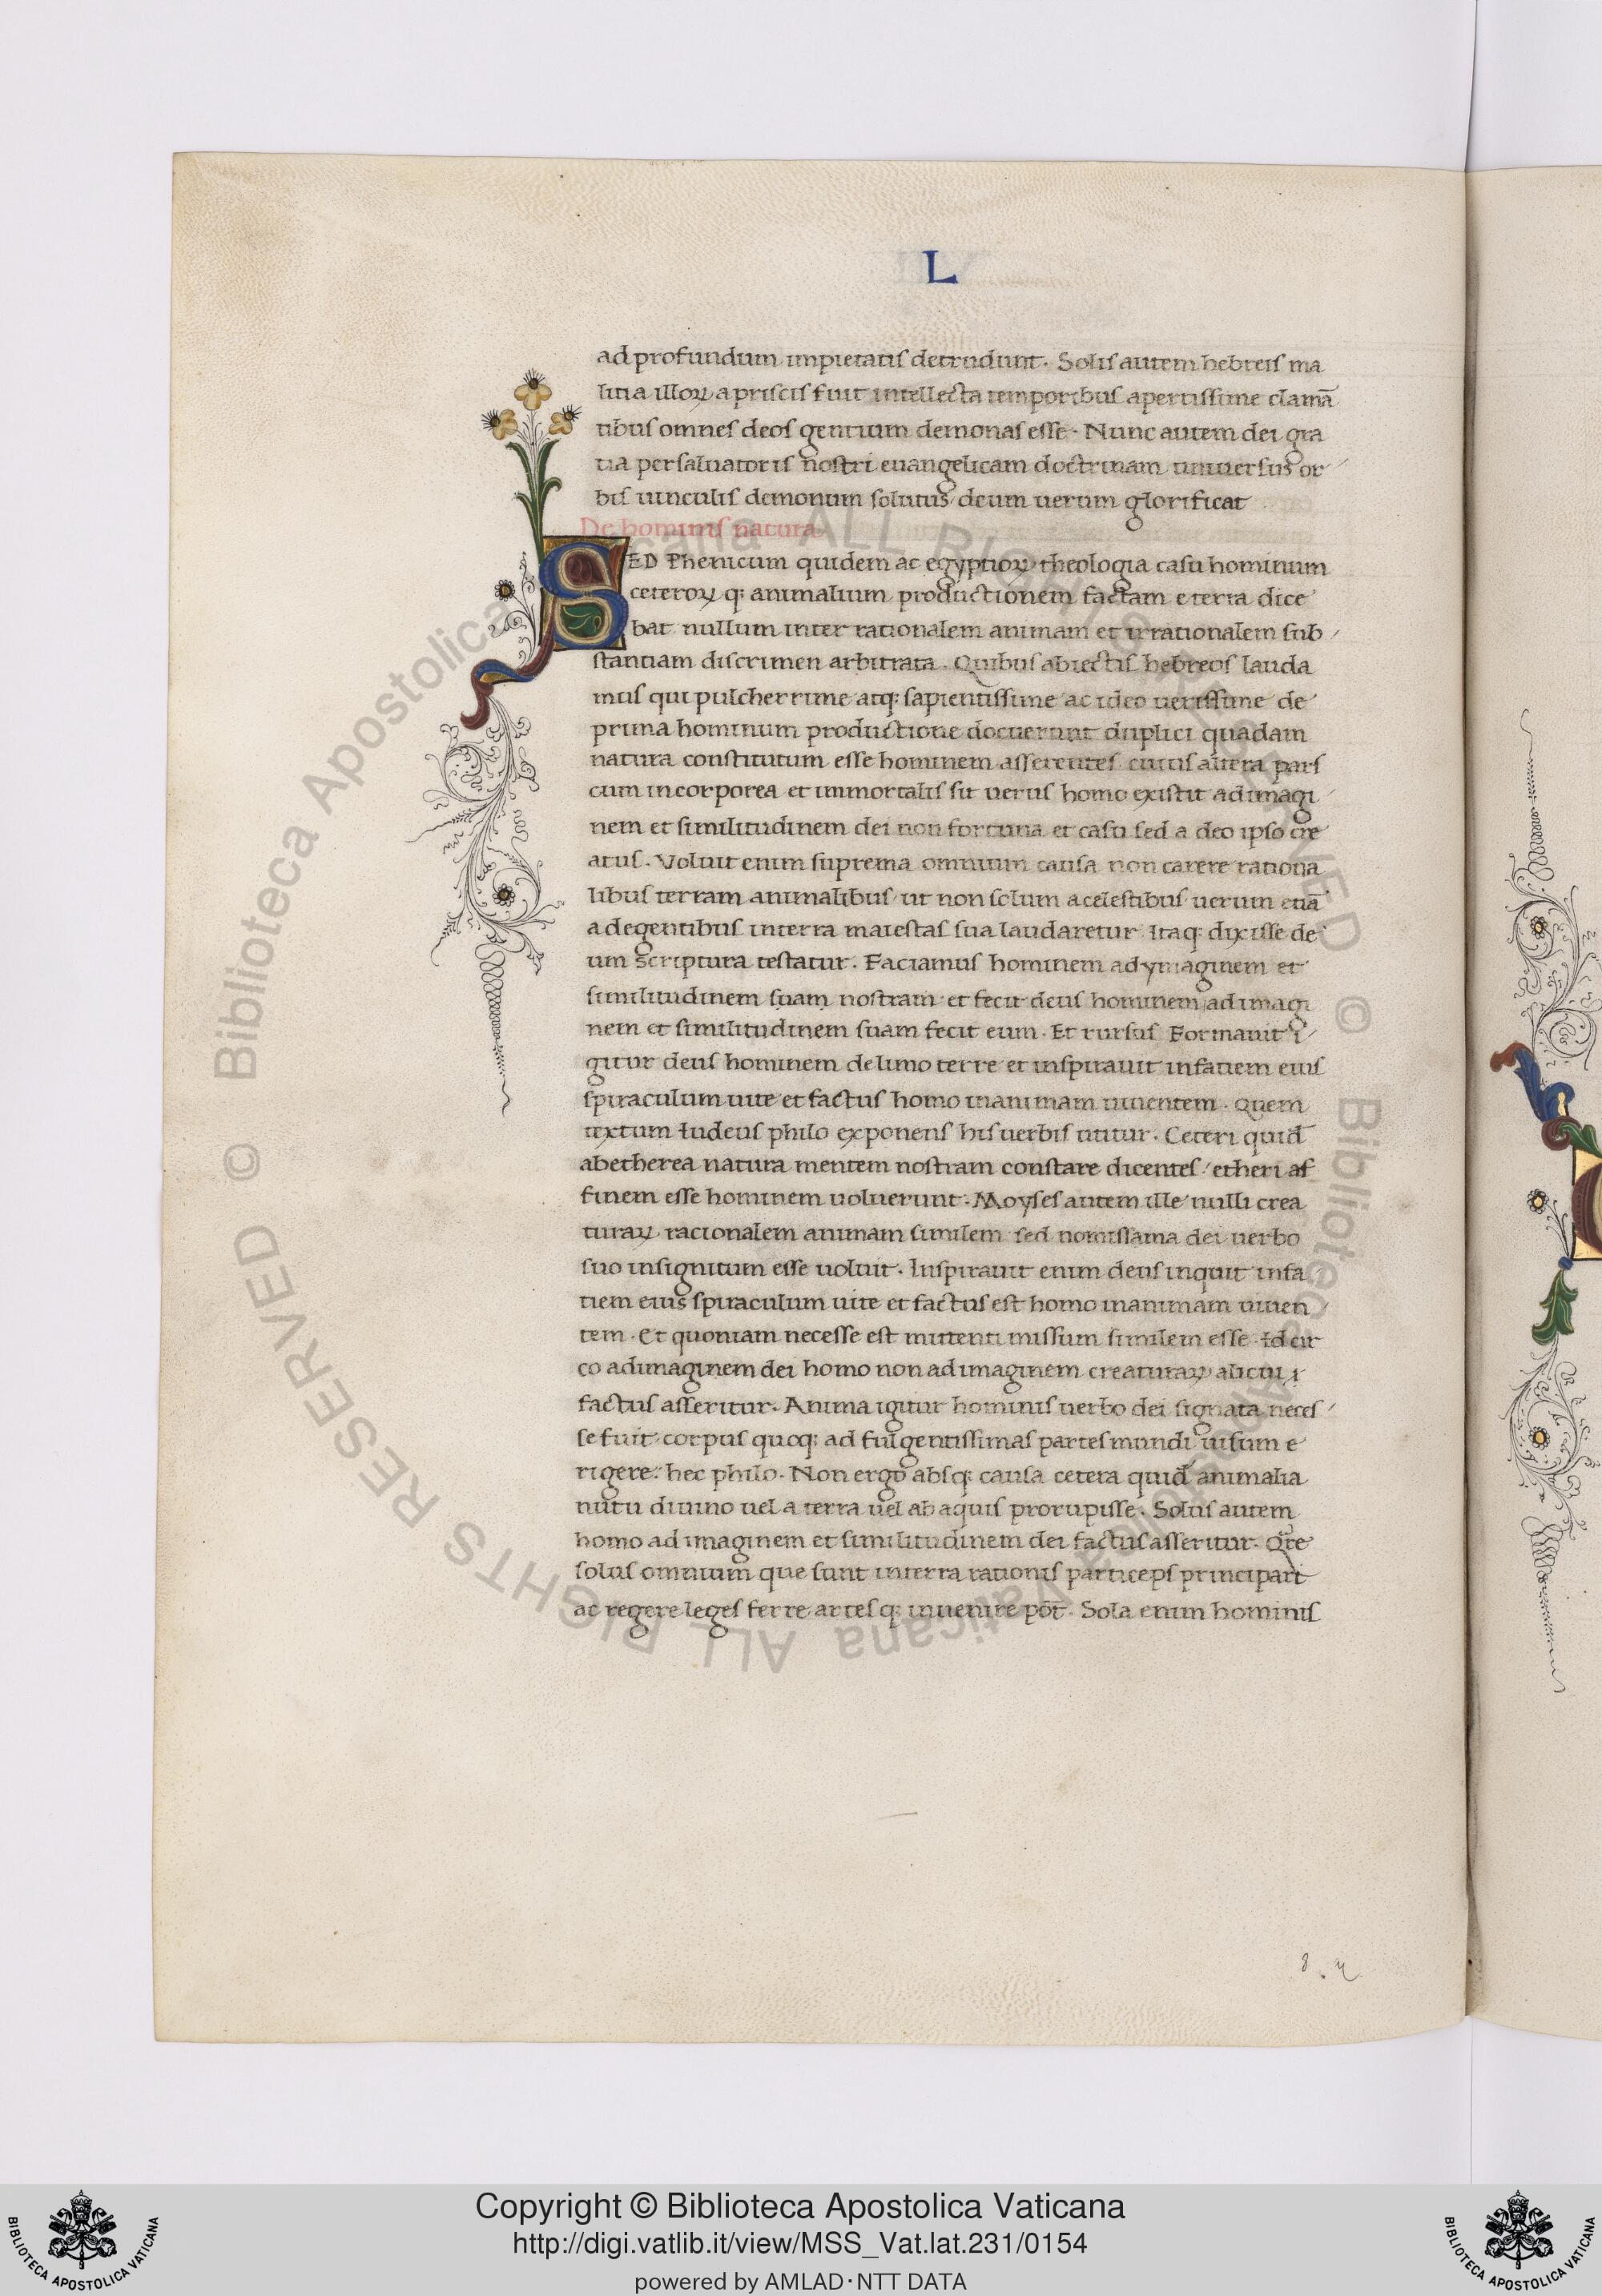 L
ad profundum impietatis detrudunt. Solis autem hebreis ma
litia illoꝝ a priscis fuit intellecta temporibus apertissime clamā
tibus omnes deos gentium demonas esse. Nunc autem dei gra
tia per saluatoris nostri euangelicam doctrinam uniuersus or
bis uinculis demonum solutus deum uerum glorificat
De hominis natura
SED Phenicum quidem ac egyptioꝝ theologia casu hominum
ceteroꝝ q; animalium productionem factam e terra dice
bat nullum inter rationalem animam et irrationalem sub
stantiam discrimen arbitrata. Quibus abiectis hebreos lauda
mus qui pulcherrime atq; sapientissime ac ideo uerissime de
prima hominum productione docuerunt duplici quadam
natura constitutum esse hominem asserentes cuius altera pars
cum incorporea et immortalis sit uerus homo existit ad imagi
nem et similitudinem dei non fortuna et casu sed a deo ipso cre
atus. Voluit enim suprema omnium causa non carere rationa
libus terram animalibus ut non solum a celestibus uerum etiā
a degentibus in terra maiestas sua laudaretur Itaq; dixisse de
um scriptura testatur. Faciamus hominem ad ymaginem et
similitudinem suam nostram et fecit deus hominem ad imagi
nem et similitudinem suam fecit eum. Et rursus Formauit i
gitur deus hominem de limo terre et inspirauit in fatiem eius
spiraculum uite et factus homo in animam uiuentem. Quem
textum Iudeus philo exponens his uerbis utitur. Ceteri quid̄
ab etherea natura mentem nostram constare dicentes etheri af
finem esse hominem uoluerunt. Moyses autem ille nulli crea
turaꝝ racionalem animam similem sed nomissama dei uerbo
suo insignitum esse uoluit. Inspirauit enim deus inquit in fa
tiem eius spiraculum uite et factus est homo in animam uiuen
tem. Et quoniam necesse est mittenti missum similem esse. Id cir
co ad imaginem dei homo non ad imaginem creaturaꝝ alicui
factus asseritur. Anima igitur hominis uerbo dei signata neces
se fuit corpus quoq; ad fulgentissimas partes mundi uisum e
rigere. hec philo. Non ergo absq; causa cetera quid̄ animalia
nutu diuino uel a terra uel ab aquis prorupisse. Solus autem
homo ad imaginem et similitudinem dei factus asseritur. Qre
solus omnium que sunt in terra rationis particeps principari
ac regere leges ferre artes q; inuenire pōt. Sola enim hominis
Biblioteca Apostolica Vaticana ALL RIGHTS RESERVED ©
Biblioteca Apostolica Vaticana ALL RIGHTS RESERVED ©
Copyright © Biblioteca Apostolica Vaticana
http://digi.vatlib.it/view/MSS_Vat.lat.231/0154
powered by AMLAD·NTT DATA
BIBLIOTECA APOSTOLICA VATICANA
BIBLIOTECA APOSTOLICA VATICANA